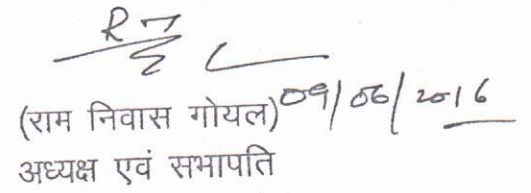 (राम निवास गोयल) 09/06/2016
अध्यक्ष एवं सभापति